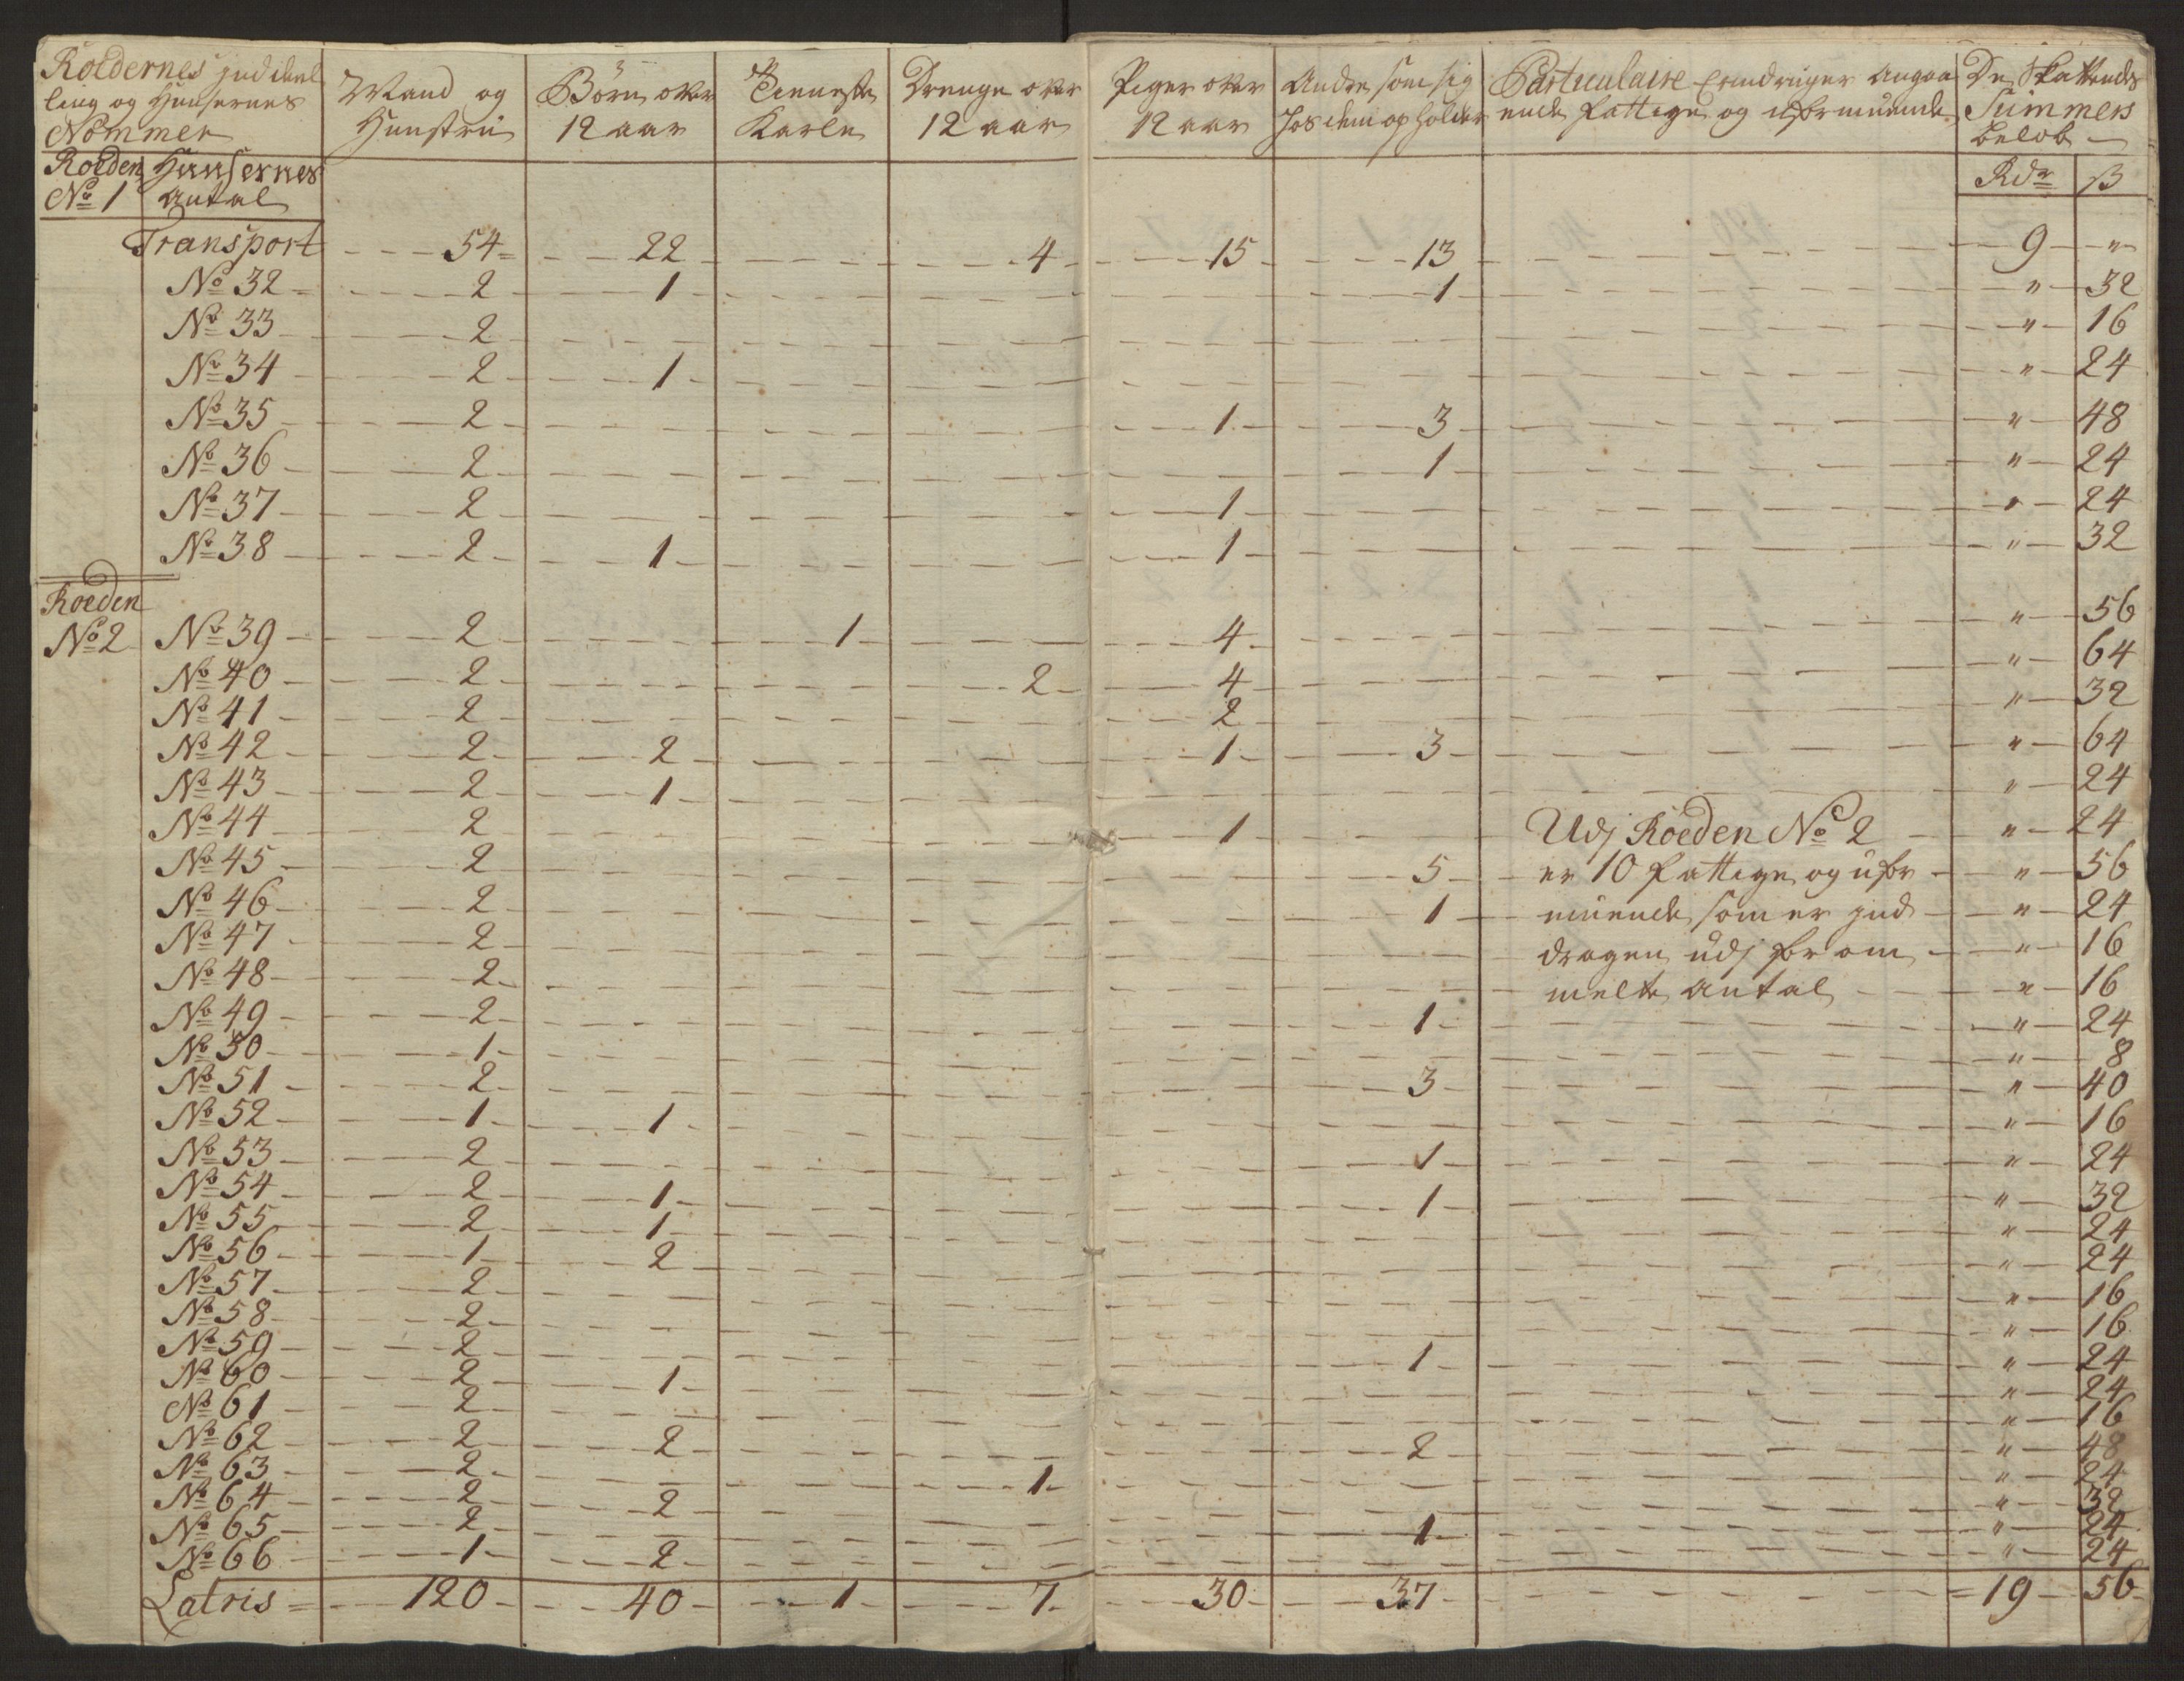 Roedernes inddeel
ling og Huusernes
Nommer
Mand og
Hunstru
Börn over
12 aar
Tieneste
Karle
Drenge over
12 aar
Piger over
12 aar
Andre som sig
hos dem opholder
Particulaire Erindringer angaa
ende fattige og uformuende
De Skattendes
Summers
belob
Roeden Huusernes
No 1 antal
Rdr ß
Transport 54 22 4 15 13 9 "
No 32 2 1 1 " 32
No 33 2 " 16
No 34 2 1 " 24
No 35 2 1 3 " 48
No 36 2 1 " 24
No 37 2 1 " 24
No 38 2 1 1 " 32
Roeden
No 2 No 39 2 1 4 " 56
No 40 2 2 4 " 64
No 41 2 2 " 32
No 42 2 2 1 3 " 64
No 43 2 1 " 24
No 44 2 1 Udj Roeden No 2 " 24
No 45 2 5 er 10 fattige og ufor " 56
No 46 2 1 muende som er ind " 24
No 47 2 dragen udj forom " 16
No 48 2 melte antal " 16
No 49 2 1 " 24
No 50 1 " 8
No 51 2 3 " 40
No 52 1 1 " 16
No 53 2 1 " 24
No 54 2 1 1 " 32
No 55 2 1 " 24
No 56 1 2 " 24
No 57 2 " 16
No 58 2 " 16
No 59 2 1 " 24
No 60 2 1 " 24
No 61 2 " 16
No 62 2 2 2 " 48
No 63 2 1 " 24
No 64 2 2 " 32
No 65 2 1 " 24
No 66 1 2 " 24
Latris 120 40 1 7 30 37 19 56